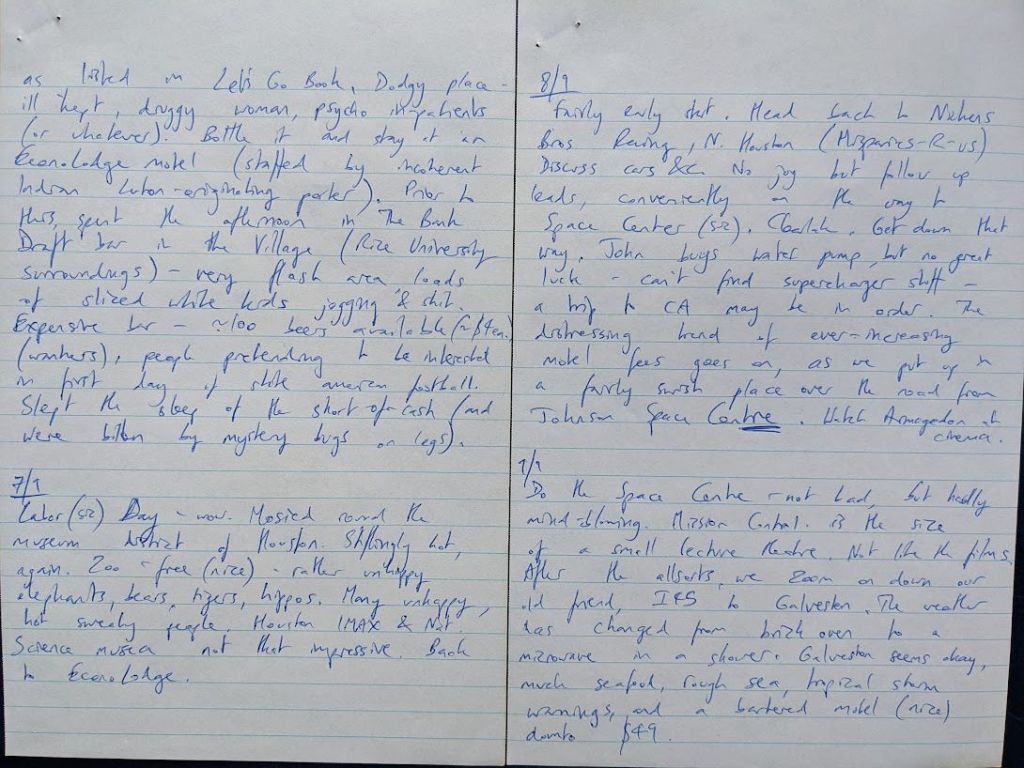 as listed in Let's Go Book. Dodgy place -
ill kept, druggy woman, psycho in-patients
(or whatever). Bottle it and stay at an
EconoLodge motel (staffed by incoherent
Indian Luton-originating porter). Prior to
this, spent the afternoon in The Bank
Draft bar in the Village (Rice University
surroundings) - very flash area, loads
of sliced white kids jogging & shit.
Expensive bar - ~100 beers available
(wankers), people pretending to be interested
in first day of shite american football.
Slept the sleep of the short-of-cash (and
were bitten by mystery bugs on legs).
7/9
Labor (sic) Day - wow. Mosied round the
museum district of Houston. Stiflingly hot,
again. Zoo - free (nice) - rather unhappy
elephants, bears, tigers, hippos. Many unhappy,
hot sweaty people. Houston IMAX & Nat.
Science musea not that impressive. Back
to EconoLodge.
8/9
Fairly early start. Head back to
Bros Racing, N. Houston (Mopars-R-us)
Discuss cars &c. No joy but follow up
leads, conveniently on the way to
Space Center (sic). Get down that
way. John buys water pump, but no great
luck - can't find supercharger stuff -
a trip to CA may be in order. The
distressing trend of ever-increasing
motel fees goes on, as we put up in
a fairly swish place over the road from
Johnson Space Centre. Watch Armagedon at
cinema.
9/9
Do the Space Centre - not bad, but hardly
mind-blowing. Mission Control is the size
of a small lecture theatre. Not like the films.
After the allsorts, we zoom on down our
old friend, I45 to Galveston. The weather
has changed from brick oven to a
microwave in a shower. Galveston seems okay,
much seafood, rough sea, tropical storm
warnings, and a bartered motel (nice)
downto $49.